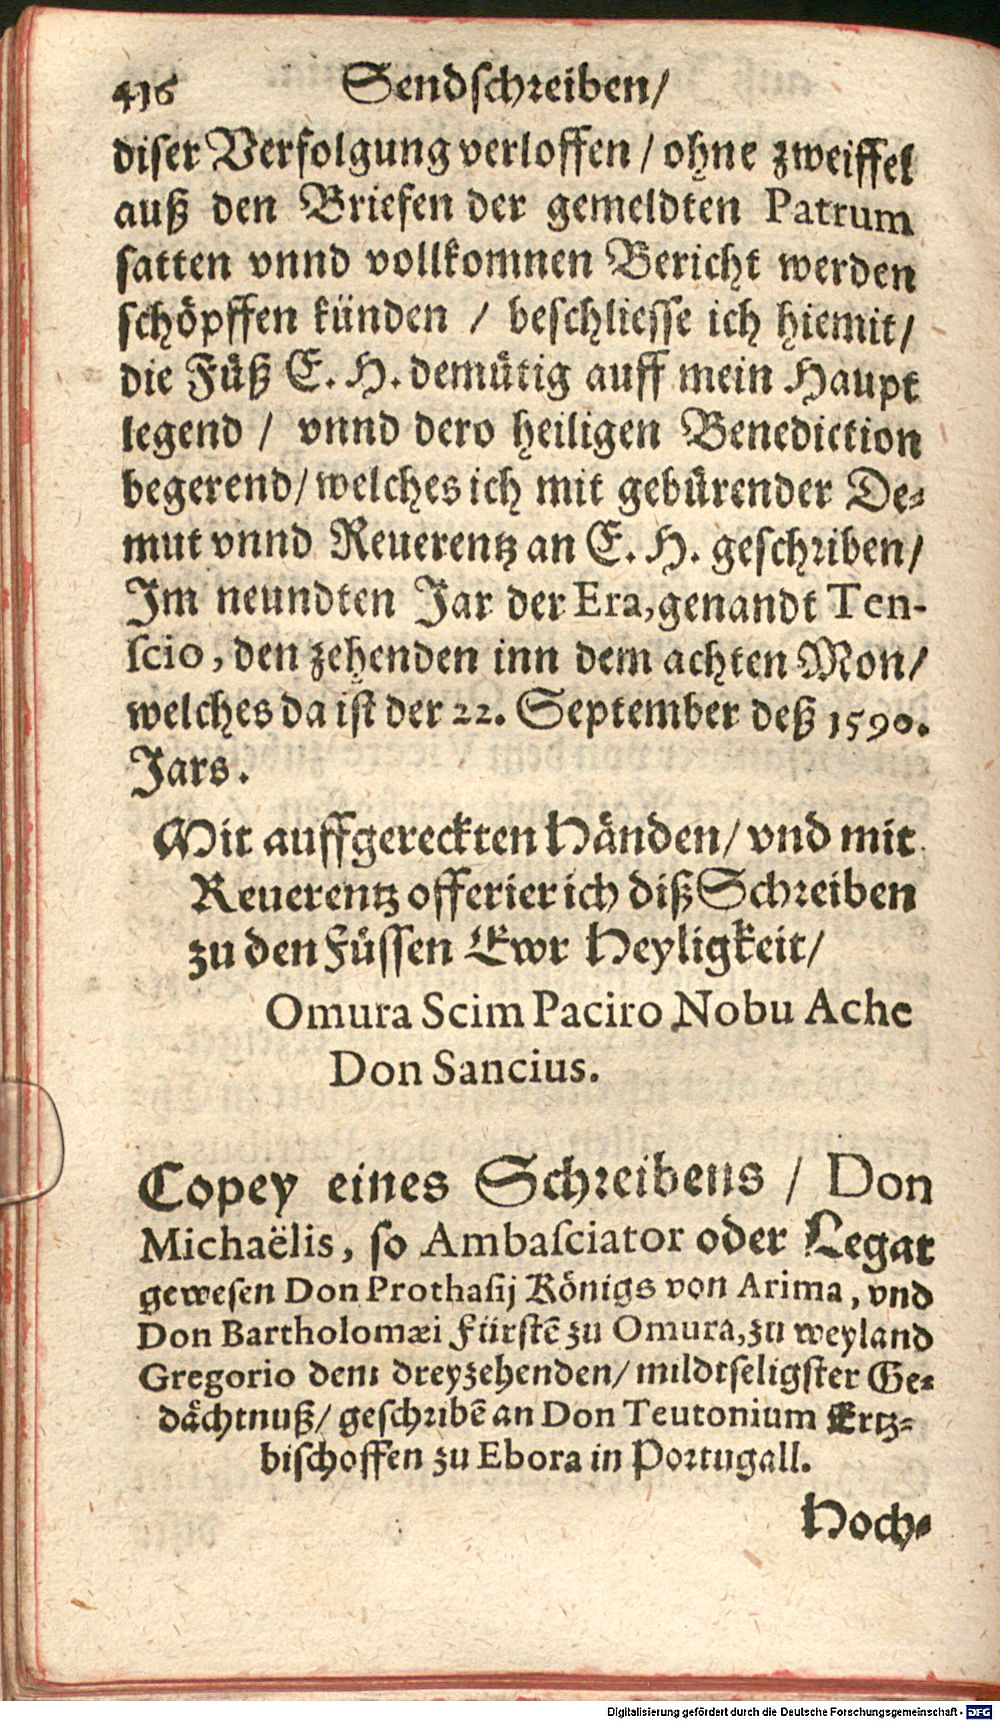 416 Sendschreiben/
diser Verfolgung verloffen / ohne zweiffel
auß den Briefen der gemeldten Patrum
satten vnnd vollkomnen Bericht werden
schöpffen künden / beschliesse ich hiemit/
die Füß E. H. demütig auff mein Haupt
legend / vnnd dero heiligen Benediction
begerend/ welches ich mit gebürender De⸗
mut vnnd Reuerentz an E. H. geschriben/
Im neundten Jar der Era, genandt Ten-
scio, den zehenden inn dem achten Mon/
welches da ist der 22. September deß 1590.
Jars.
Mit auffgereckten Händen/ vnd mit
Reuerentz offerier ich diß Schreiben
zu den Füssen Ewr Heyligkeit/
Omura Scim Paciro Nobu Ache
Don Sancius.
Copey eines Schreibens / Don
Michaëlis, so Ambasciator oder Legat
gewesen Don Prothasij Königs von Arima, vnd
Don Bartholomæi Fürstẽ zu Omura, zu weyland
Gregorio dem dreyzehenden/ mildtseligster Ge⸗
dächtnuß/ geschribẽ an Don Teutonium Ertz⸗
bischoffen zu Ebora in Portugall.
Hoch⸗
Digitalisierung gefördert durch die Deutsche Forschungsgemeinschaft - DFG